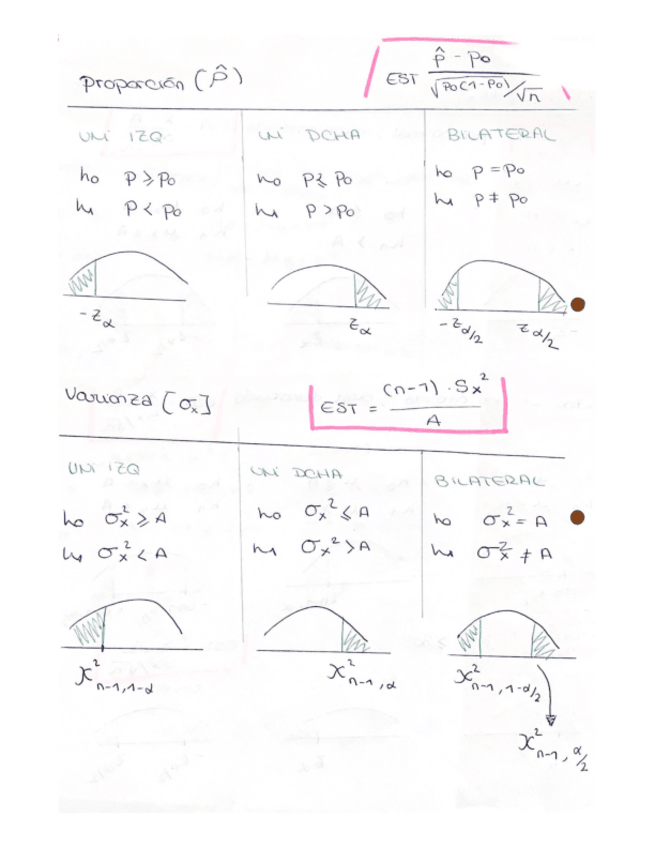 Proporción (p̂)
EST (p̂ - p₀) / (√p₀(1-p₀)/√n)
UNI IZQ UNI DCHA BILATERAL
h₀ P ≥ P₀ h₀ P ≤ P₀ h₀ P = P₀
h₁ P < P₀ h₁ P > P₀ h₁ P ≠ P₀
-z_α z_α -z_α/2 z_α/2
Varianza [σₓ]
EST = (n-1) · Sₓ² / A
UNI IZQ UNI DCHA BILATERAL
h₀ σₓ² ≥ A h₀ σₓ² ≤ A h₀ σₓ² = A
h₁ σₓ² < A h₁ σₓ² > A h₁ σₓ² ≠ A
χ²_n-1, 1-α χ²_n-1, α χ²_n-1, 1-α/2
χ²_n-1, α/2